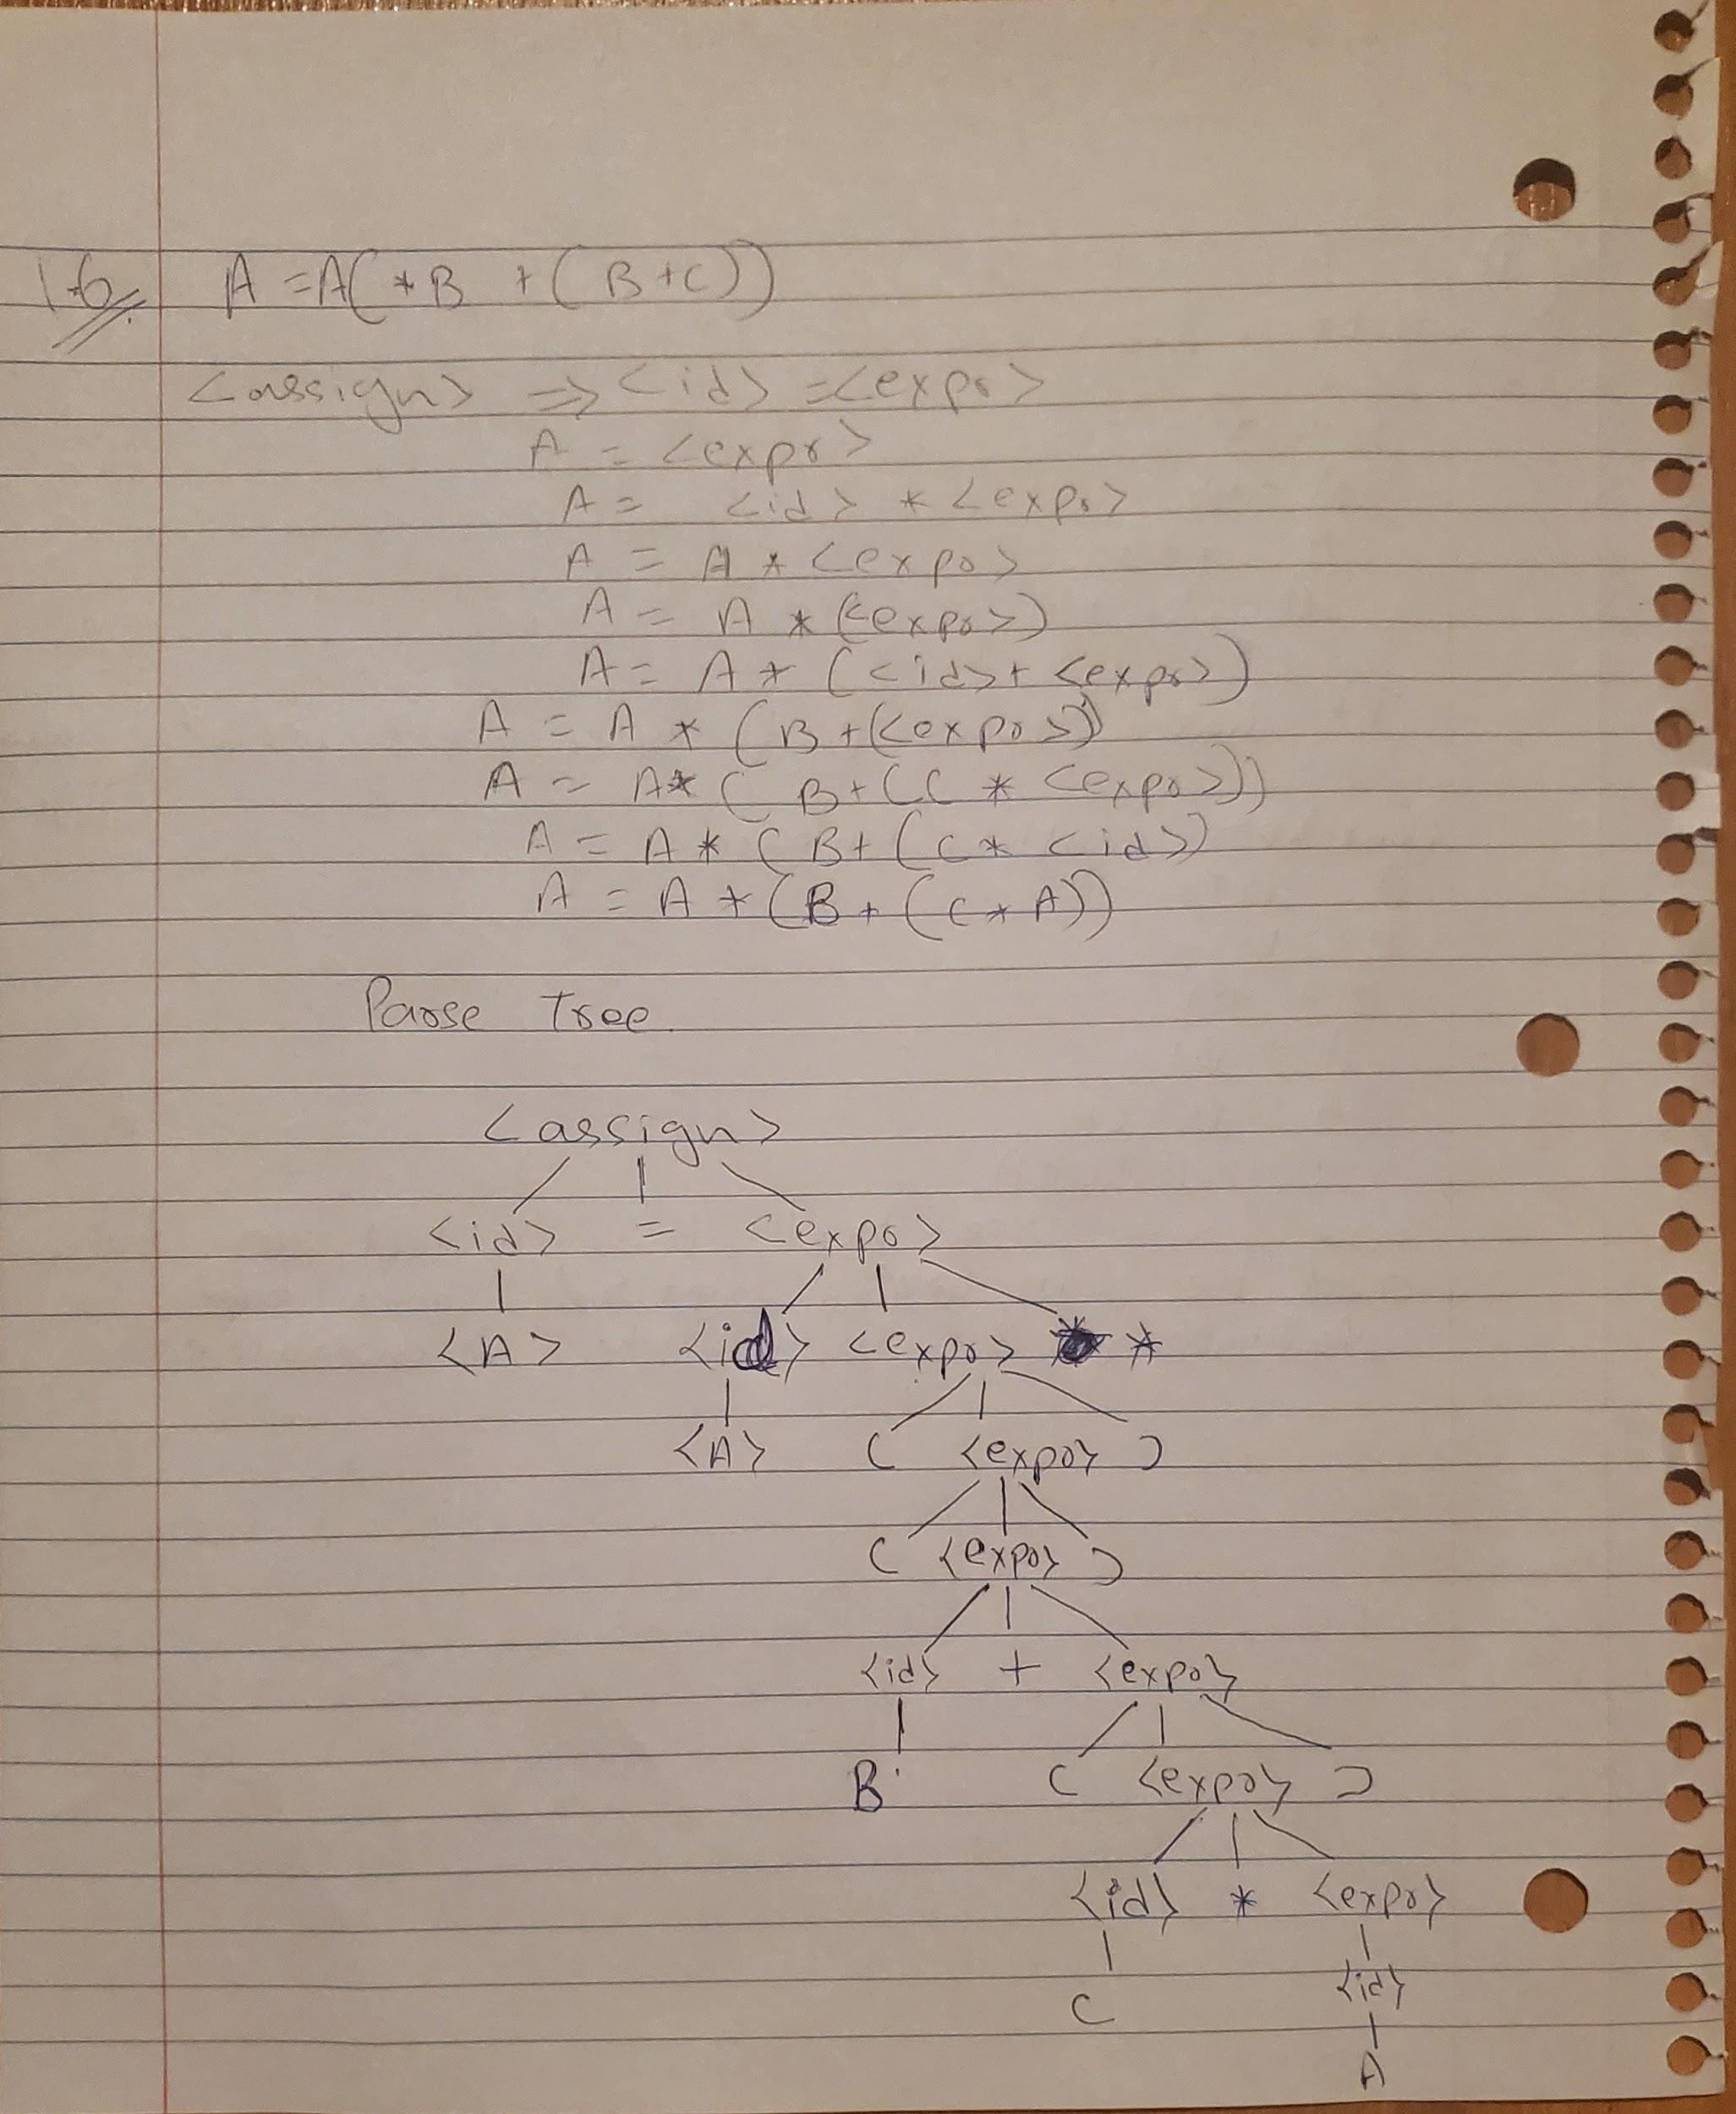 1.6. A = A(*B + (B+C))
<assign> => <id> = <expr>
A = <expr>
A = <id> * <expr>
A = A * <expr>
A = A * (<expr>)
A = A * (<id> + <expr>)
A = A * (B+(<expr>))
A = A* ( B+(C * <expr>))
A = A * ( B+ (C * <id>)
A = A * (B + (C * A))
Parse Tree.
<assign>
<id> = <expr>
<A> <id> <expr> *
<A> ( <expr> )
( <expr> )
<id> + <expr>
B ( <expr> )
<id> * <expr>
C <id>
A